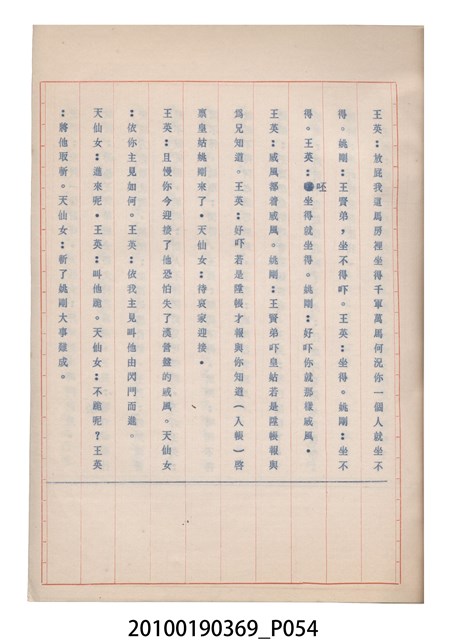 王英：放屁我這馬房裡坐得千軍萬馬何況你一個人就坐不
得。姚剛：王賢弟，坐不得吓。王英：坐得。姚剛：坐不
得。王英：呸坐得就坐得。姚剛：好吓你就那樣威風。
王英：威風都着威風。姚剛：王賢弟吓皇姑若是陞帳報與
爲兄知道。王英：好吓若是陞帳才報與你知道（入帳）啓
禀皇姑姚剛來了。天仙女：待哀家迎接。
王英：且慢你今迎接了他恐怕失了漢營盤的威風。天仙女
：依你主見如何。王英：依我主見叫他由閃門而進。
天仙女：進來呢。王英：叫他進。天仙女：不進呢？王英
：將他取斬。天仙女：斬了姚剛大事難成。
20100190369_P054